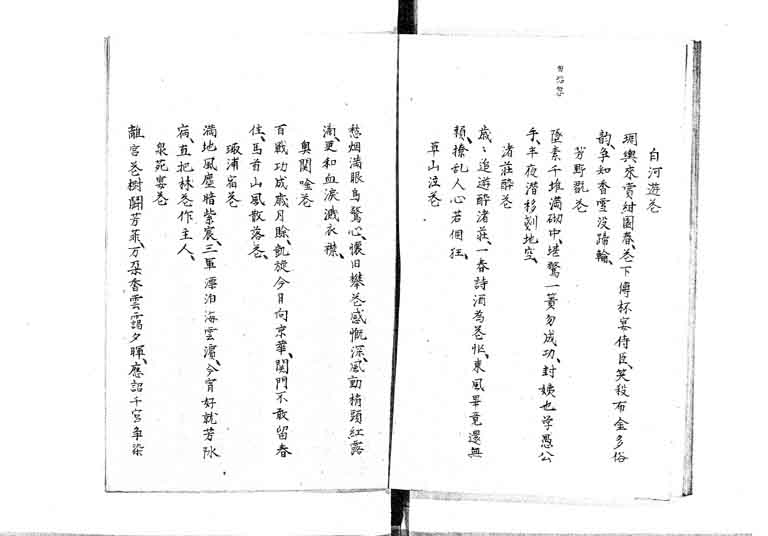 白河遊花
琱輿來賞紺園春、花下傳杯宴侍臣、笑殺布金多俗
韵、争知香雪没蹄輪、
芳野翫花
墜素千堆満砌中、堪驚一簣勿成功、封姨也学愚公
手、半夜潜移剗地空、
渚荘酔花
歳〻追遊酔渚荘、一春詩酒為花忙、東風畢竟還無
頼、撩乱人心若個狂、
草山泣花
愁烟満眼鳥驚心、懐旧攀花感慨深、風動梢頭紅露
滴、更和血涙濺衣襟、
奥関唫花
百戦功成歳月賖、凱旋今日向京華、関門不敢留春
住、馬首山風散落花、
琅浦宿花
満地風塵暗紫宸、三軍漂泊海雲濱、今宵好就芳阴
宿、直把林花作主人、
泉苑宴花
離宮花樹闘芳菲、万朶香雲靄夕暉、應詔千官争染